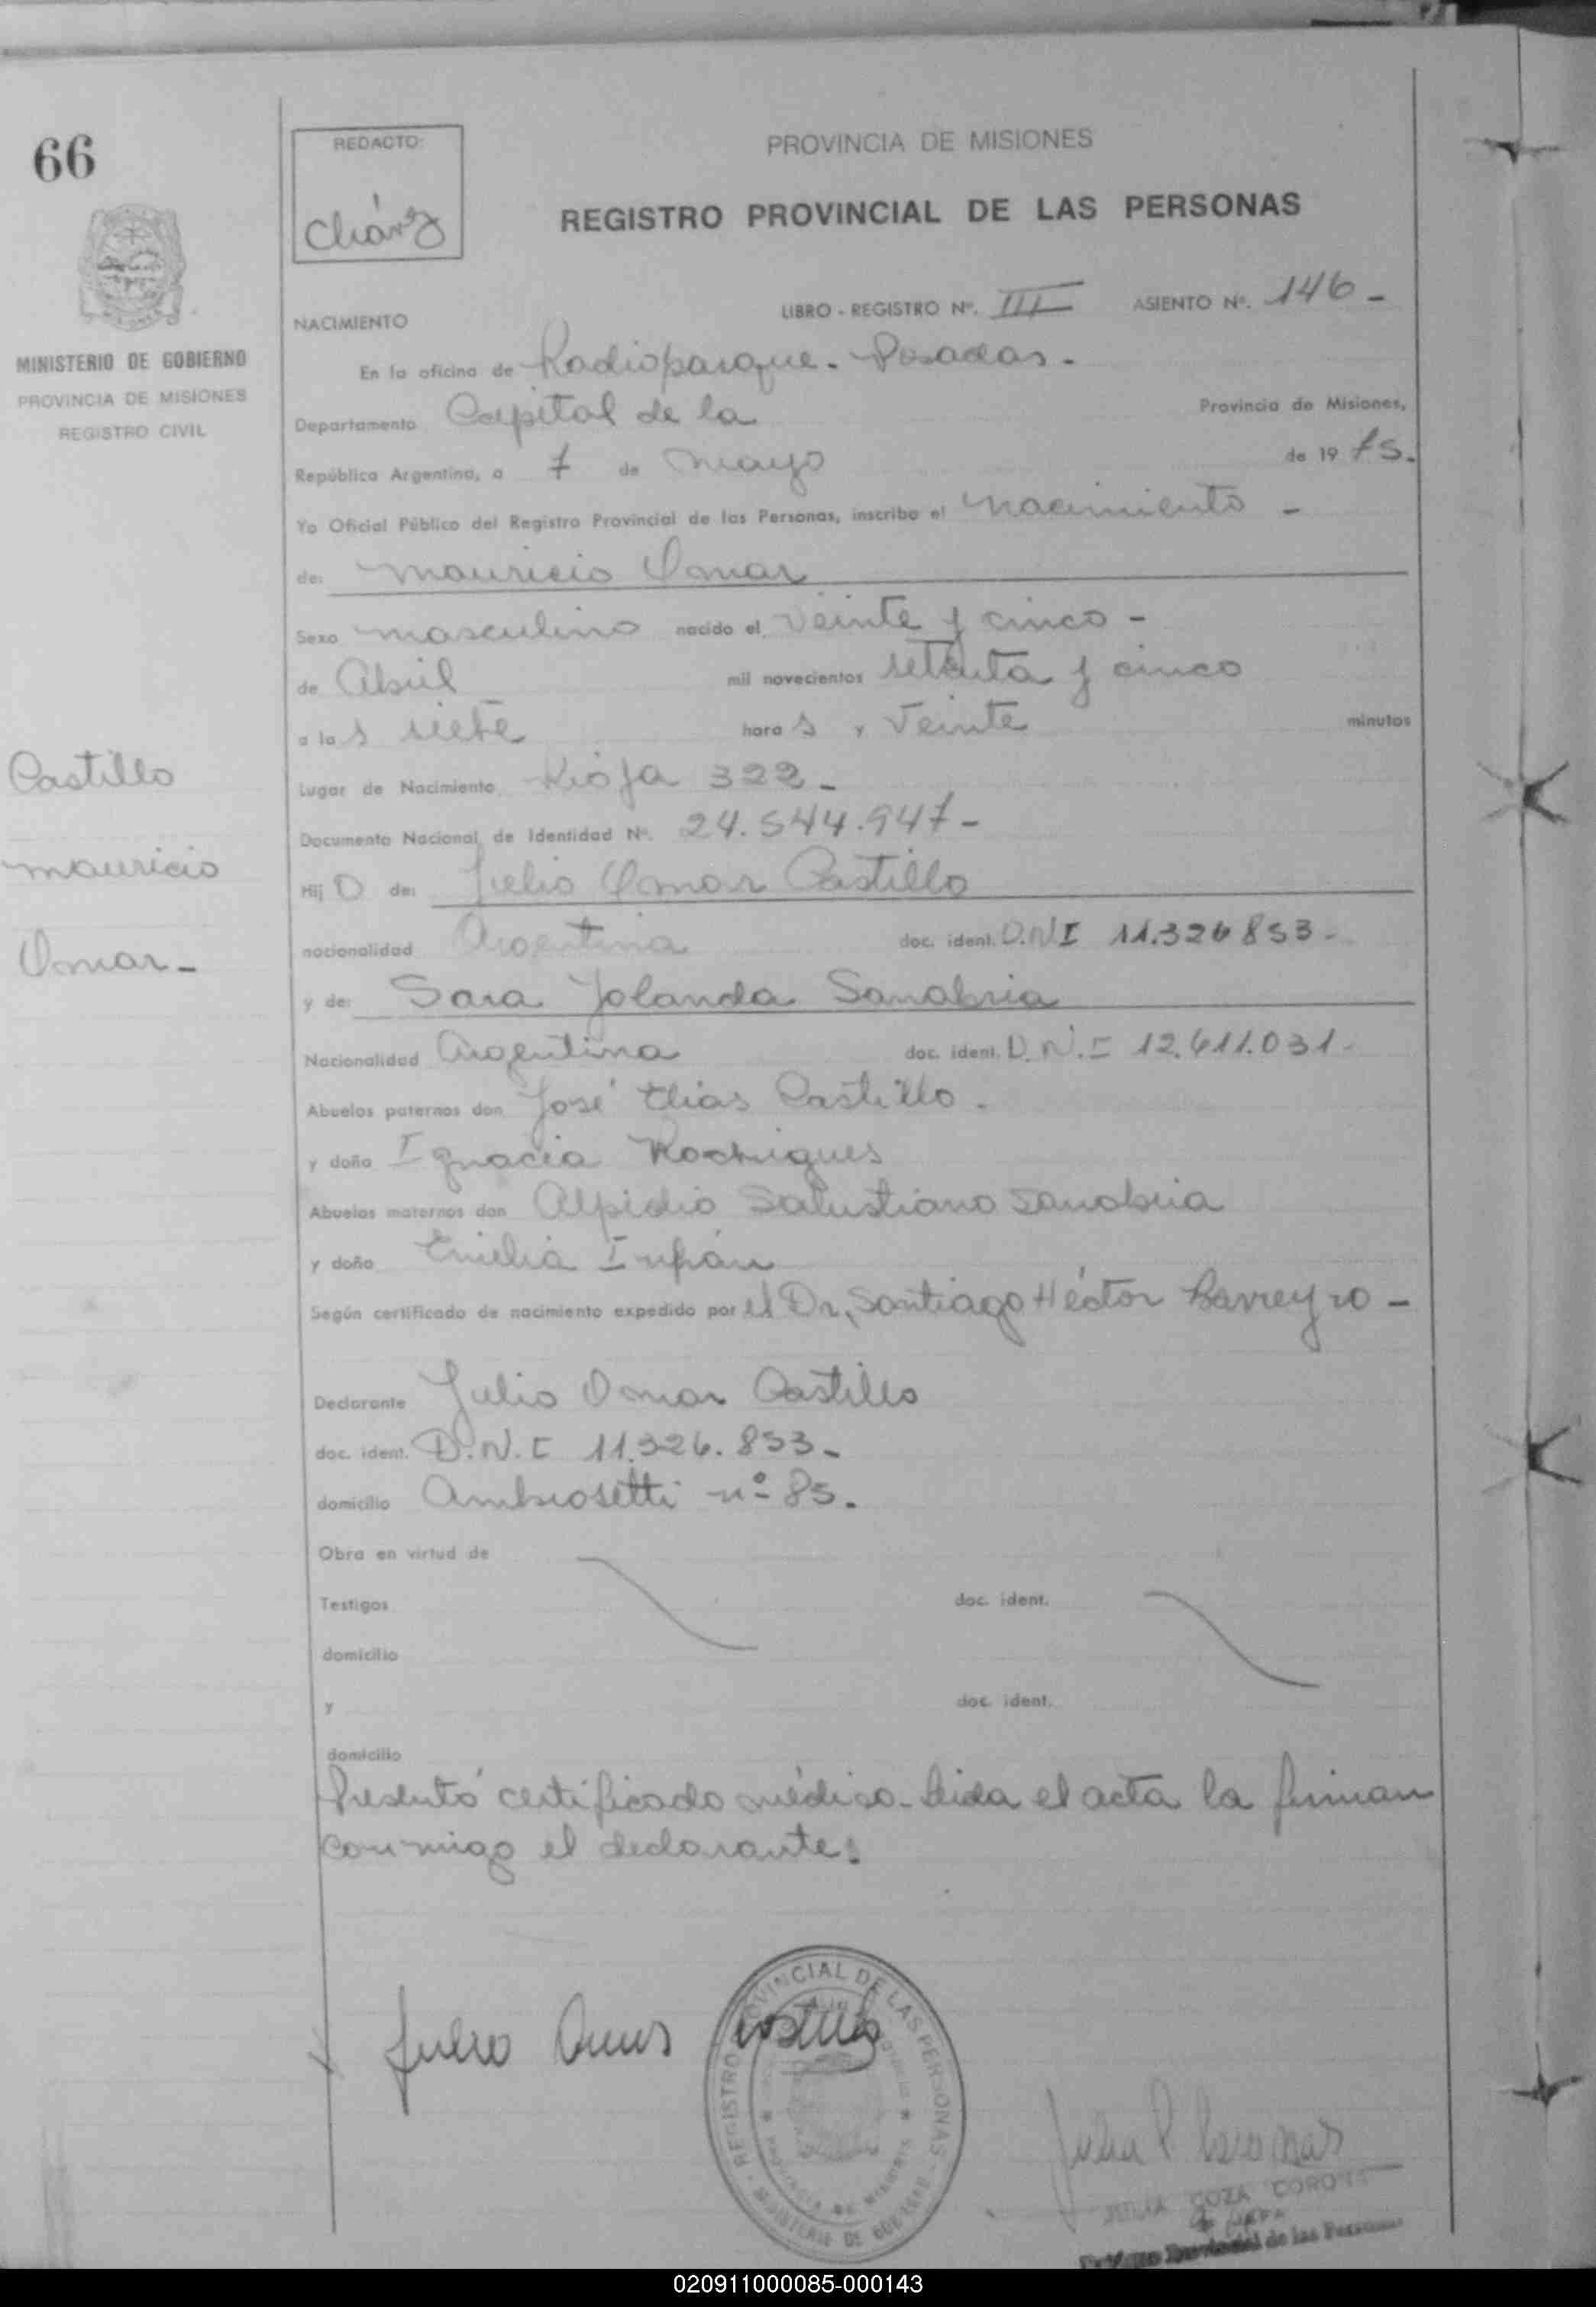 66
REDACTO:
Chávez
PROVINCIA DE MISIONES
REGISTRO PROVINCIAL DE LAS PERSONAS
MINISTERIO DE GOBIERNO
PROVINCIA DE MISIONES
REGISTRO CIVIL
NACIMIENTO
LIBRO - REGISTRO Nº. III ASIENTO Nº. 146 -
En la oficina de Radioparque - Posadas -
Departamento Capital de la Provincia de Misiones,
República Argentina, a 7 de mayo de 19 75.
Yo Oficial Público del Registro Provincial de las Personas, inscribo el nacimiento -
de: mauricio Omar
Sexo masculino nacido el veinte y cinco -
de Abril mil novecientos setenta y cinco
a las siete horas y Veinte minutos
Lugar de Nacimiento Rioja 322 -
Documento Nacional de Identidad Nº. 24.544.947 -
Hijo de: Julio Omar Castillo
nacionalidad Argentina doc. ident. D.N.I 11.326 853 -
y de: Sara Yolanda Sanabria
Nacionalidad Argentina doc. ident. D.N.I 12.611.031 -
Abuelos paternos don José Elias Castillo -
y doña Ignacia Rodrigues
Abuelos maternos don Alpidio Salustiano Sanabria
y doña Emilia Irrfán
Según certificado de nacimiento expedido por el Dr. Santiago Héctor Barreyro -
Declarante Julio Omar Castillo
doc. ident. D.N.I 11.326.853 -
domicilio Ambrosetti nº 85.
Obra en virtud de
Testigos doc. ident.
domicilio
y doc. ident.
domicilio
Presentó certificado médico - Leida el acta la firman
conmigo el declarante.
Castillo
mauricio
Omar -
Julio Omar Castillo
REGISTRO PROVINCIAL DE LAS PERSONAS
MINISTERIO DE GOBIERNO
PROVINCIA DE MISIONES
Provincial de las Personas
020911000085-000143